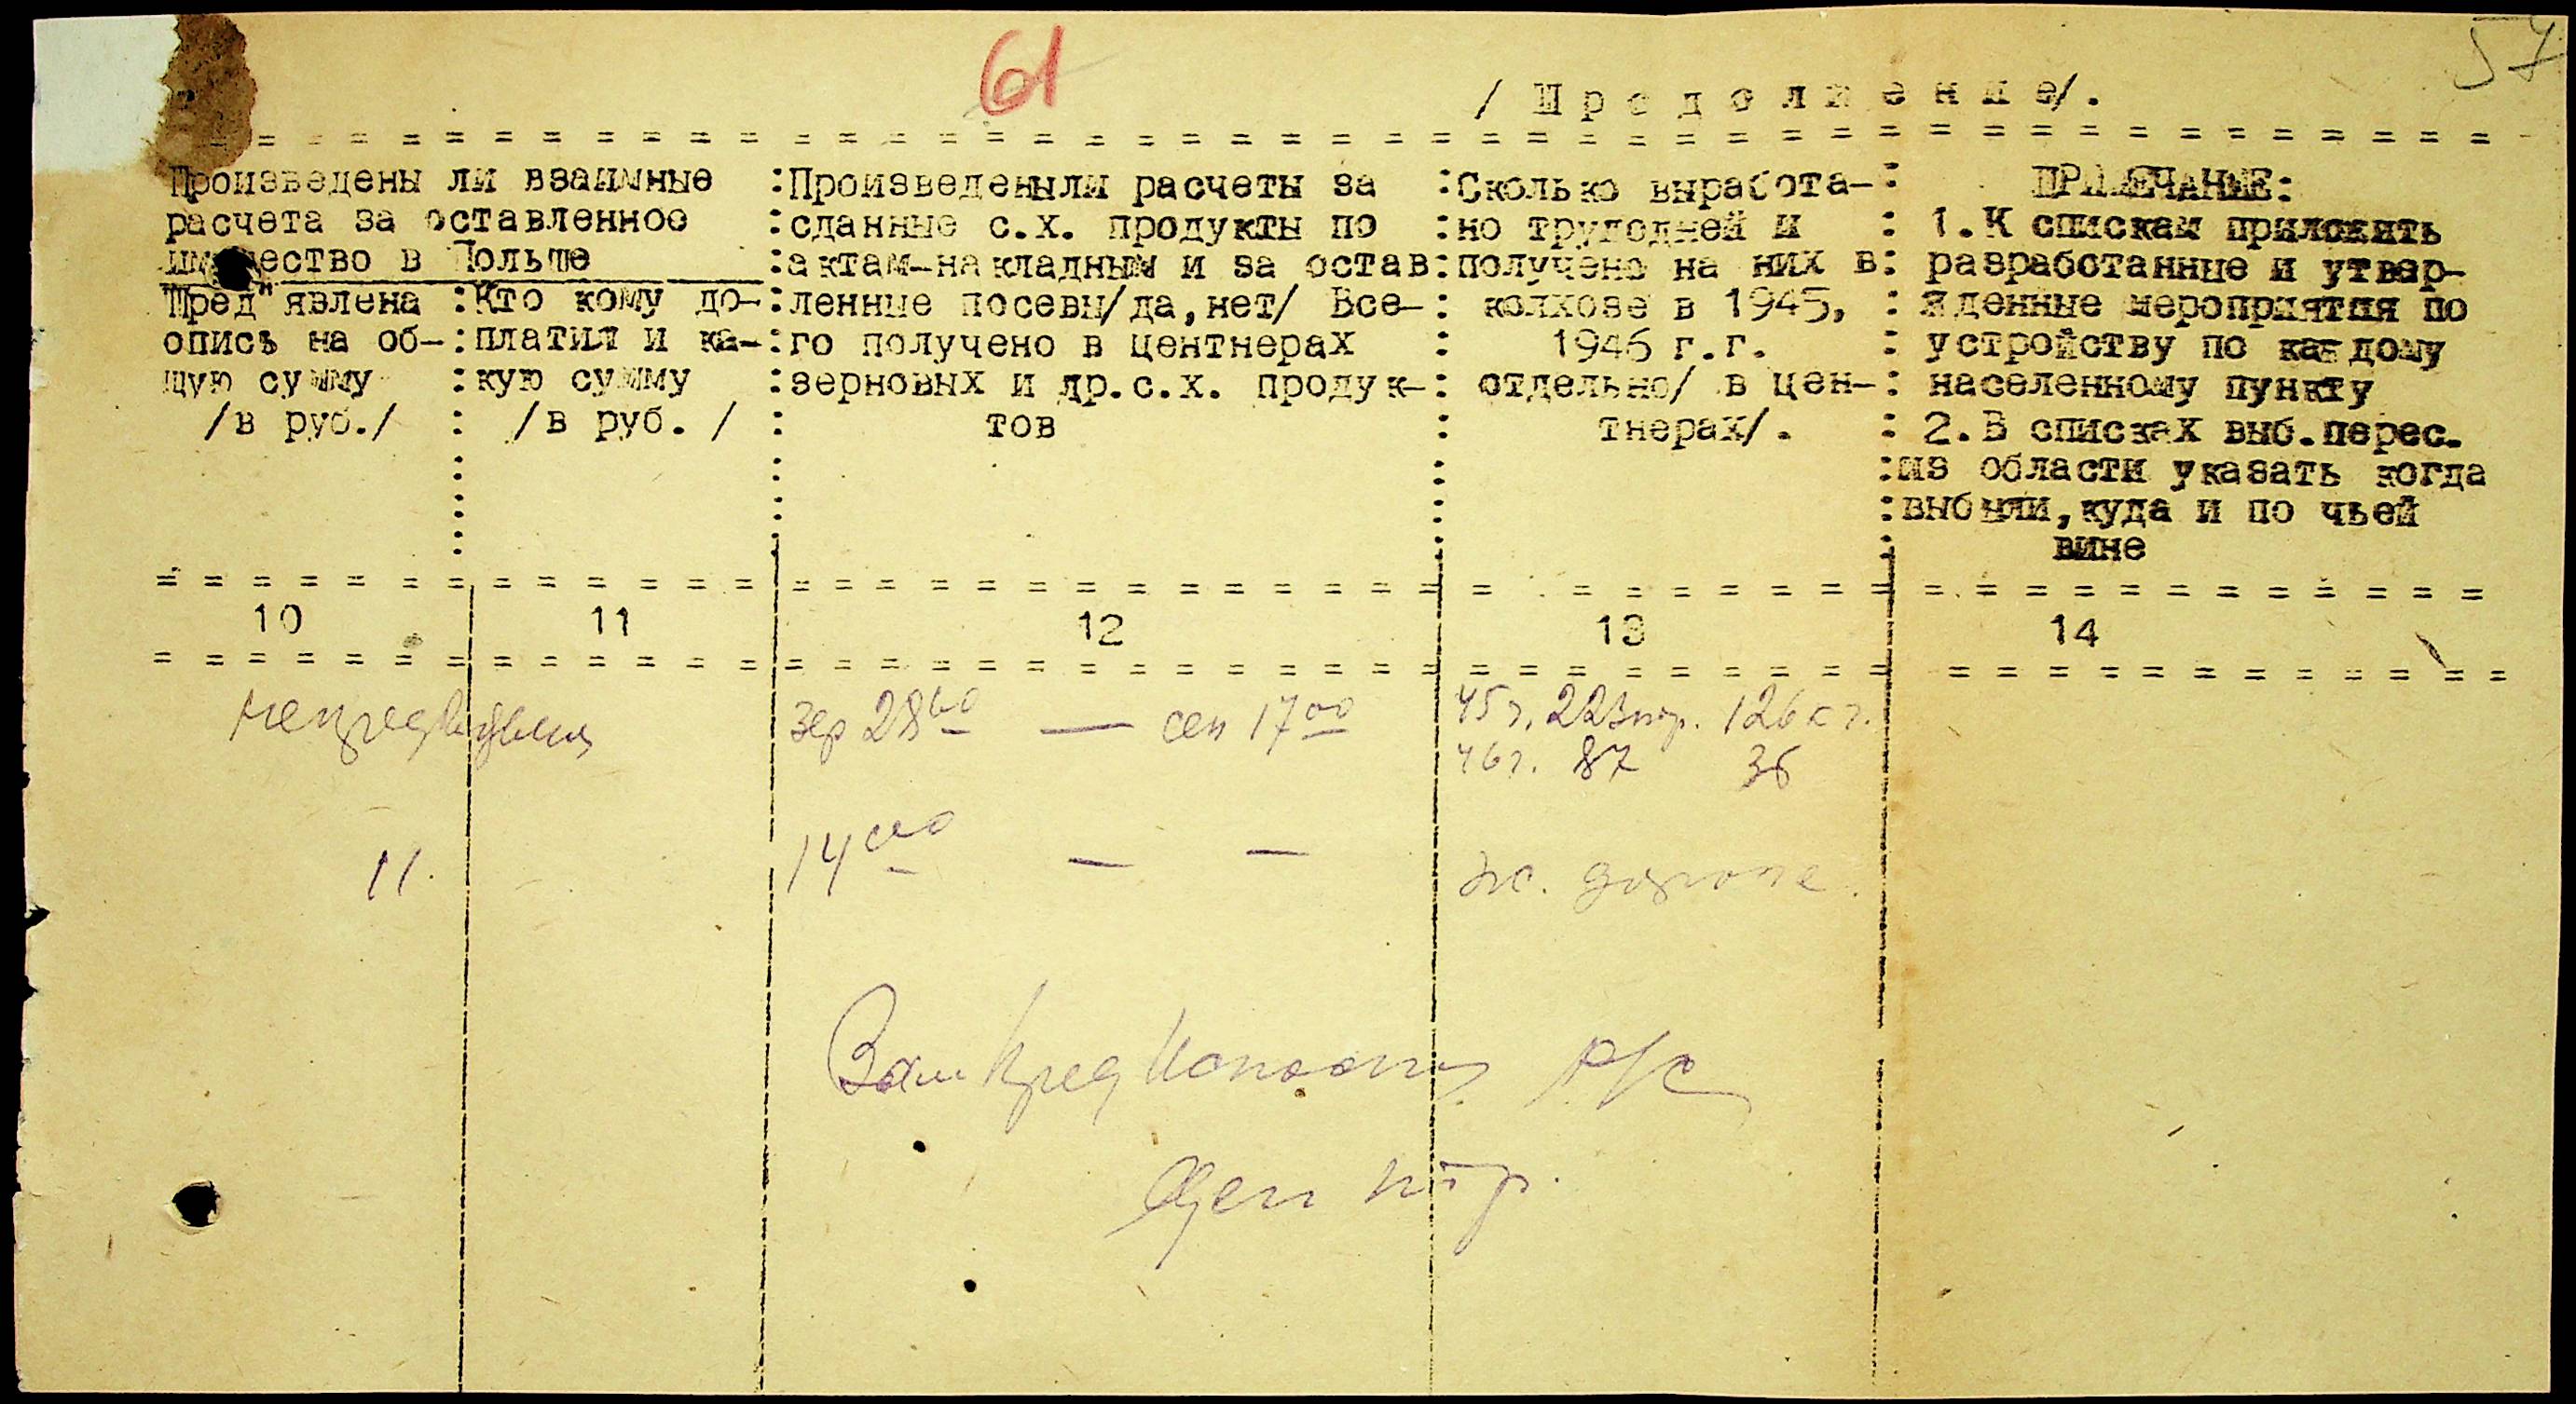 61
57
/ П р о д о л ж е н и е/.
Произведены ли взаимные
расчета за оставленное
имущество в Польше
Пред"явлена
опись на об-
щую сумму
/в руб./
Кто кому до-
платил и ка-
кую сумму
/в руб. /
Произведены ли расчеты за
сданные с.х. продукты по
актам-накладным и за остав
ленные посевы/да,нет/ Все-
го получено в центнерах
зерновых и др.с.х. продук-
тов
Сколько выработа-
но трудодней и
получено на них в
колхозе в 1945,
1946 г.г.
отдельно/ в цен-
тнерах/.
ПРИМЕЧАНИЕ:
1.К спискам приложить
разработанные и утвер-
жденные мероприятия по
устройству по каждому
населенному пункту
2.В списках выб.перес.
из области указать когда
выбыли,куда и по чьей
вине
10 11 12 13 14
зер 28 00 — сен 17 00
45 г. 223 126 кг.
46 г. 87 36
11. 14 00 — —
ж. дороге.
Зам пред